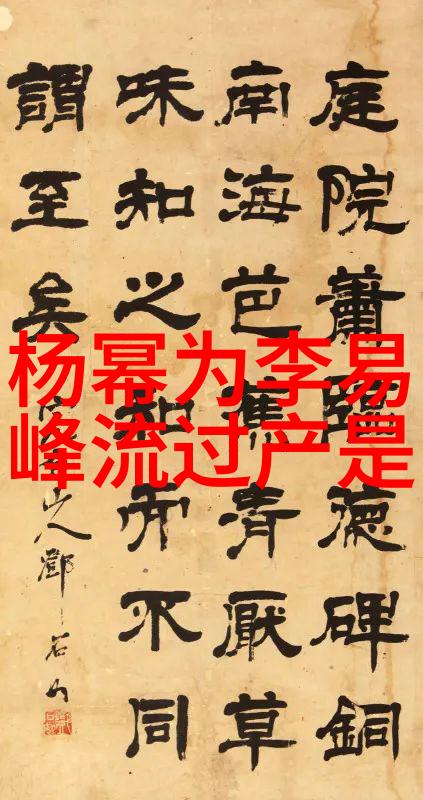 杨幂为李易
峰流过产是
庭院蕭德碑銅
南海芭蕉青厭草
味知之知而不同
謂至矣
山人鄧石如